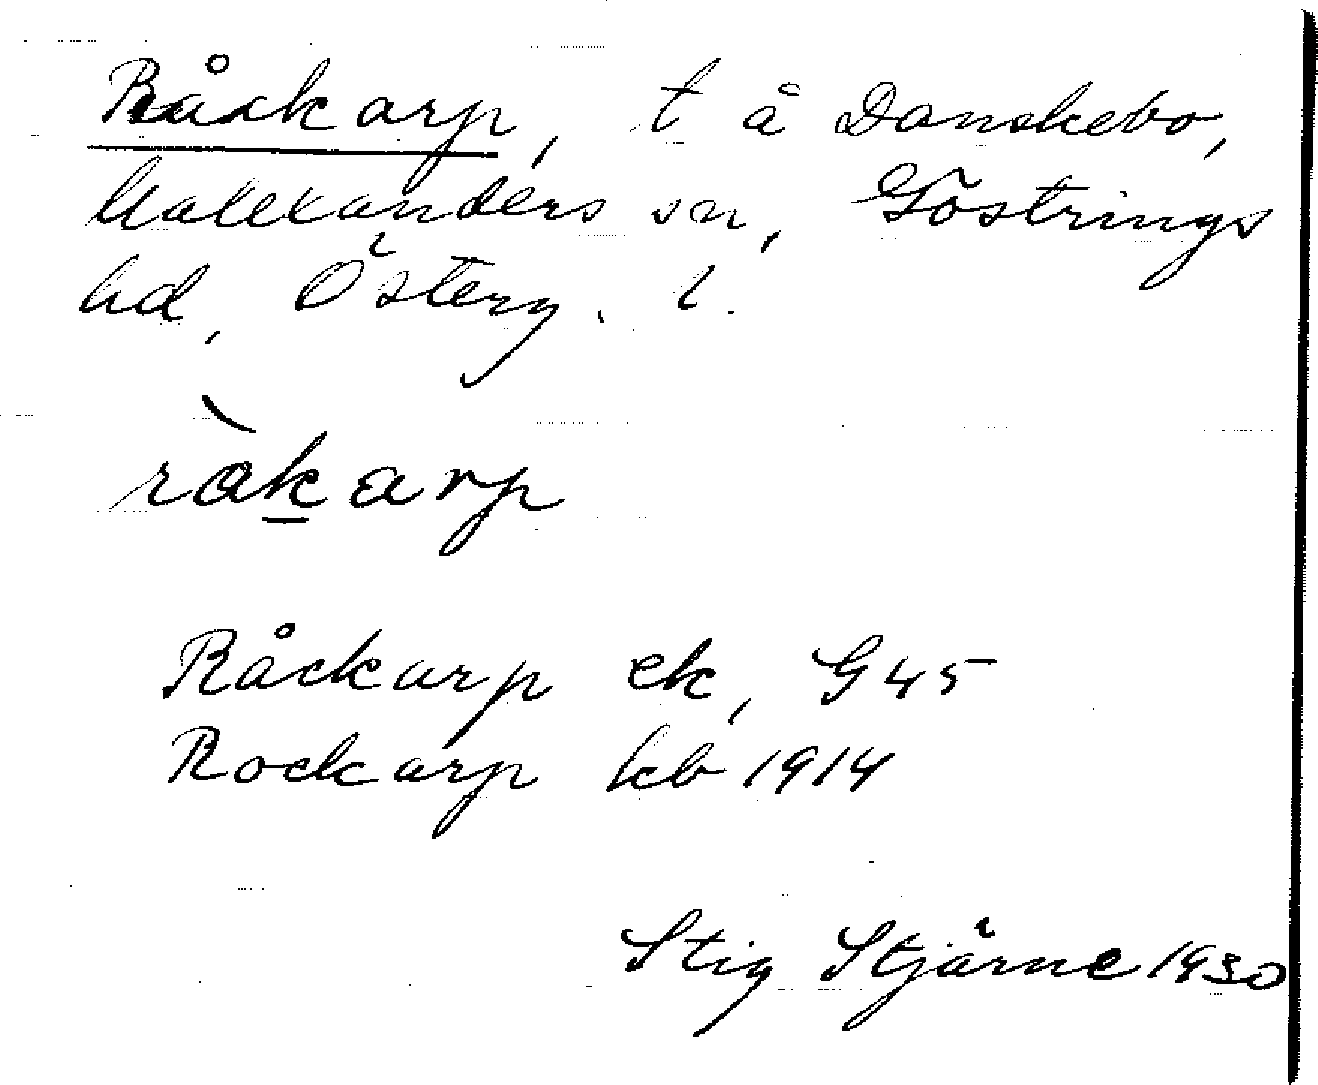 Råckarp, t å Danskebo,
Malexanders sn, Göstrings
hd, Österg. l.
ràkarp
Råckarp ek, G45
Rockarp kb 1914
Stig Stjärne 1930